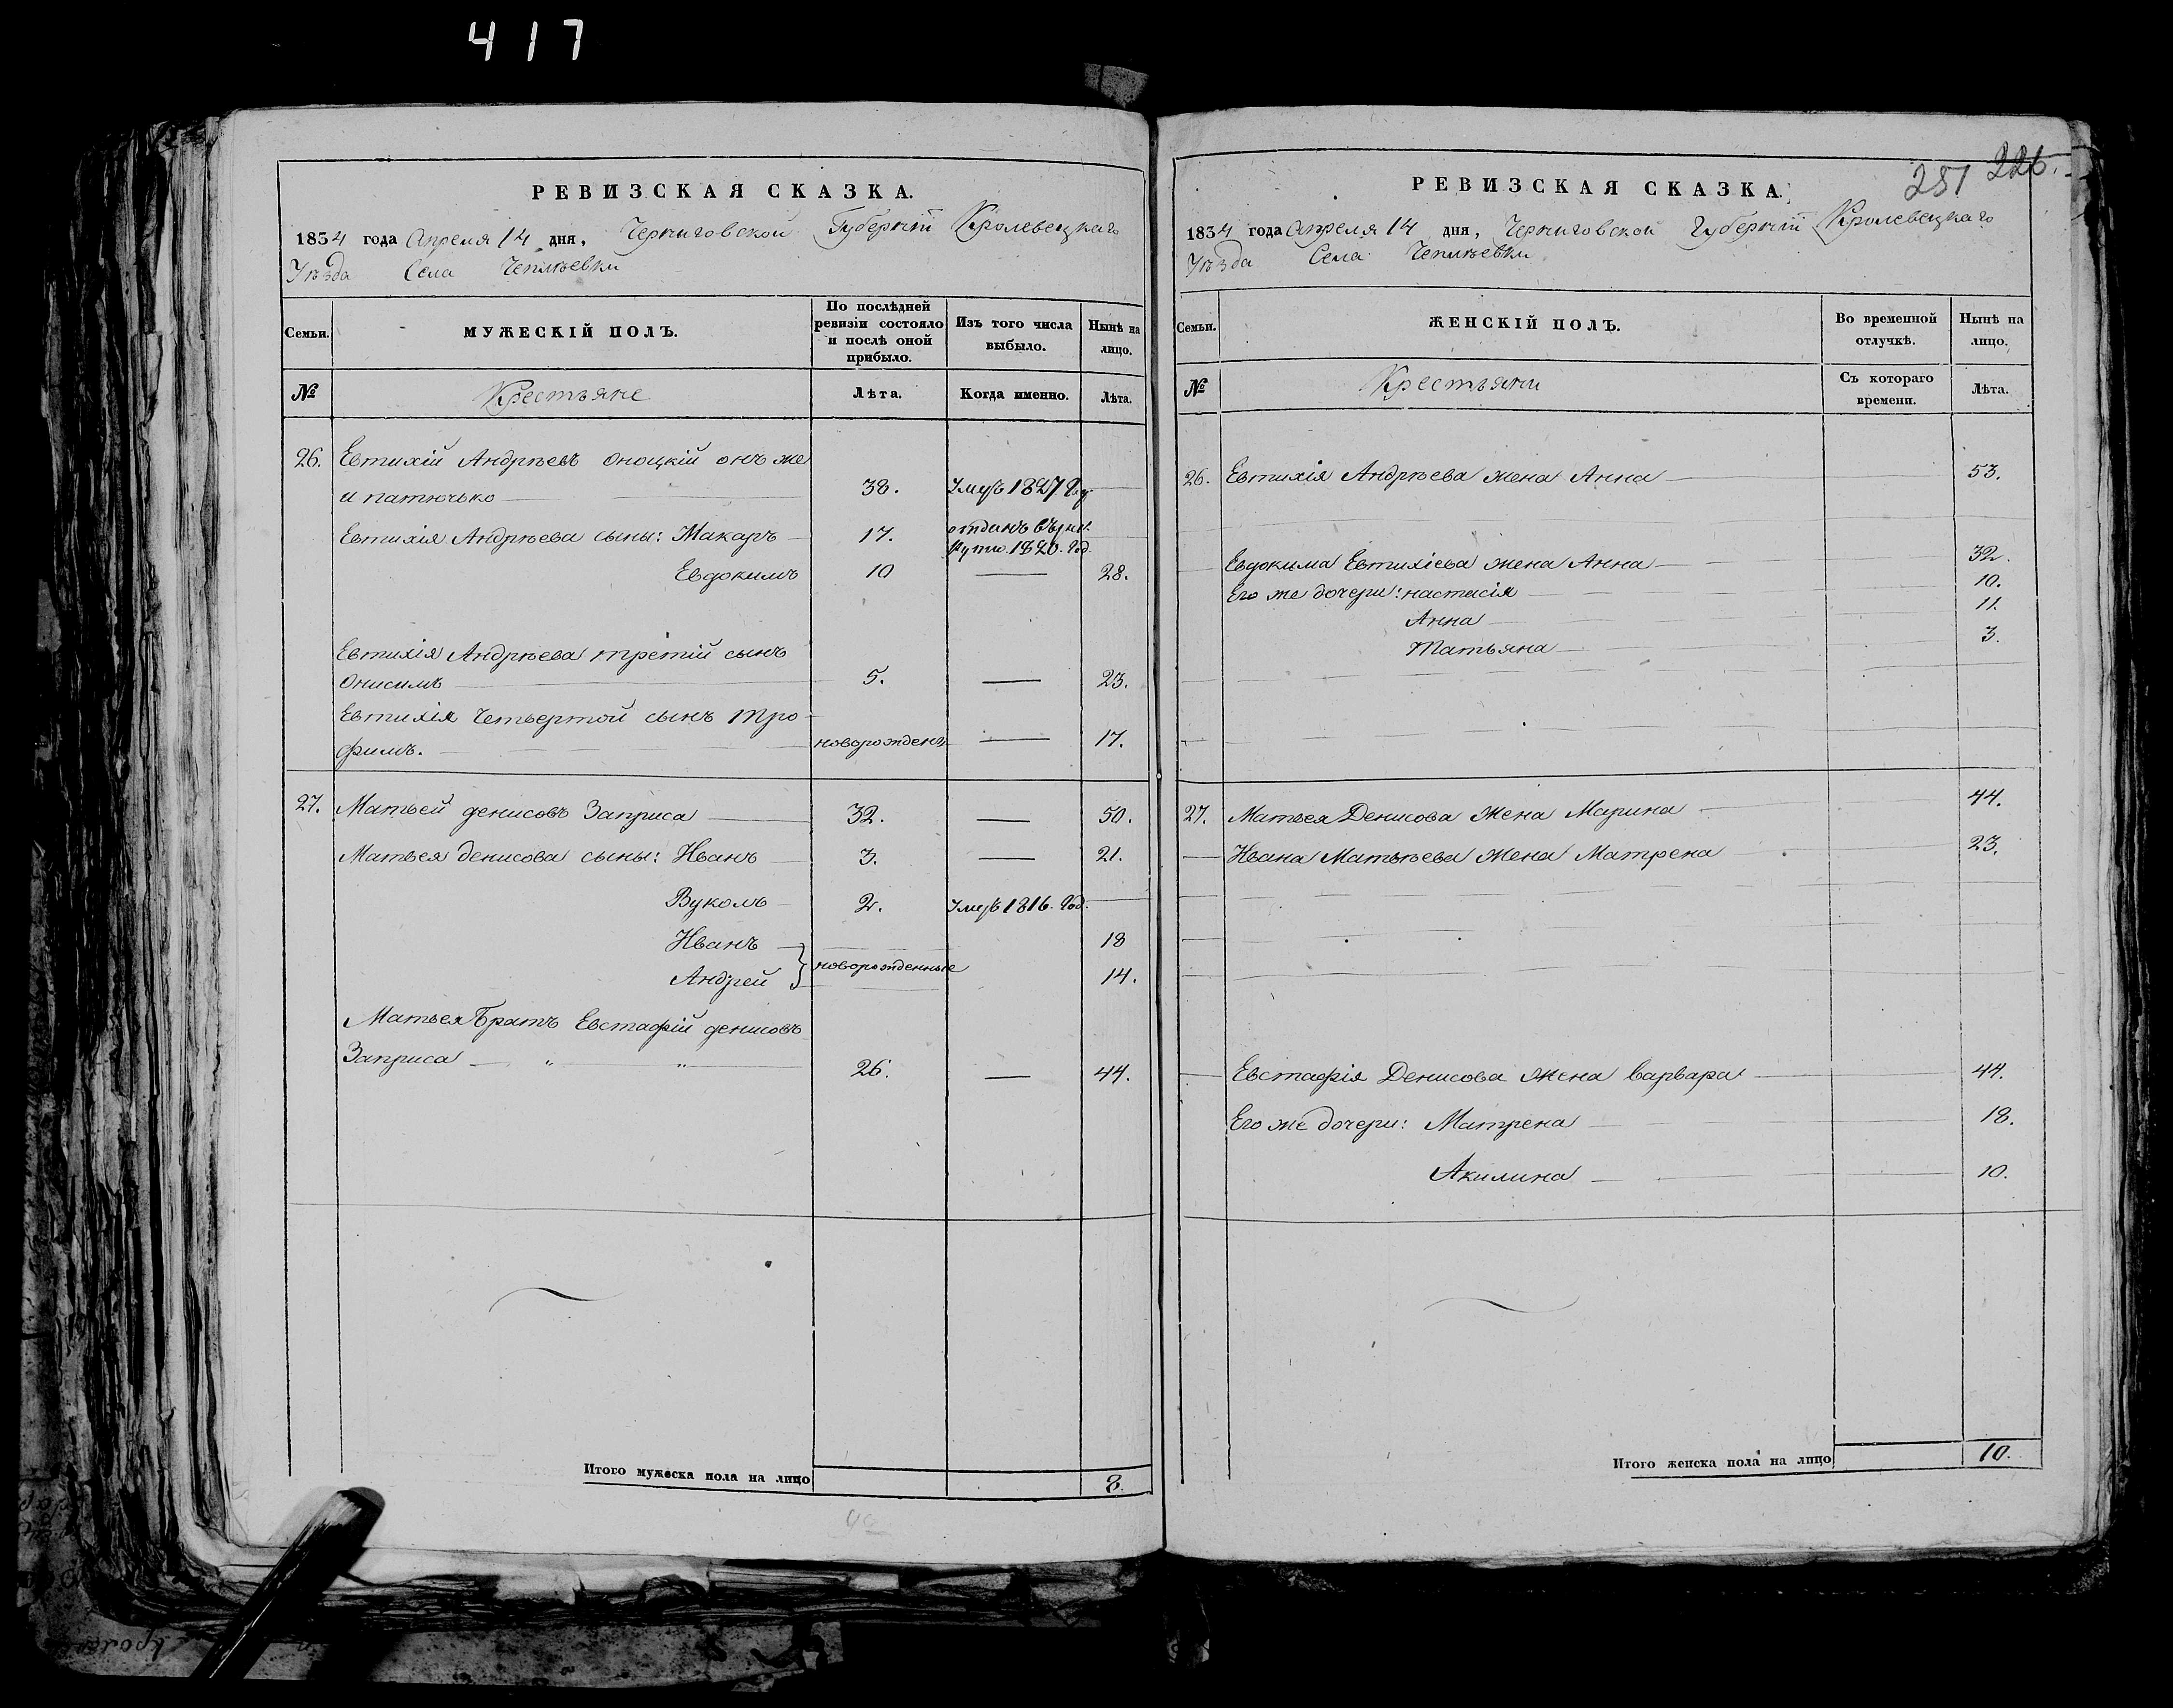 417
РЕВИЗСКАЯ СКАЗКА.
1834 года Апреля 14 дня, Черниговской Губернiи Кролевецкаго
Уѣзда Села Чепліевки
Семьи. МУЖЕСКІЙ ПОЛЪ. По послѣдней ревизіи состояло и послѣ оной прибыло. Изъ того числа выбыло. Нынѣ на лицо.
№ Крестьяне Лѣта. Когда именно. Лѣта.
26. Евтихій Андрѣевъ Оноцкій онъ же
и патючько 38. Умеръ 1827 Году
Евтихія Андрѣева сыны: Макаръ 17. отданъ въ рекруты 1820. Год.
Евдокимъ 10 28.
Евтихія Андрѣева третій сынъ
Онисимъ 5. 23.
Евтихія Четвертой сынъ Тро-
фимъ. новорожденъ 17.
27. Матвей денисовъ Заприса 32. 50.
Матвея денисова сыны: Иванъ 3. 21.
Вуколъ 2. Умеръ 1816. Год.
Иванъ 18
Андрей } новорожденные 14.
Матвея Братъ Евстафій денисовъ
Заприса „ „ 26. 44.
Итого мужеска пола на лицо 8.
251 226.
РЕВИЗСКАЯ СКАЗКА.
1834 года Апреля 14 дня, Черниговской Губернiи Кролевецкаго
Уѣзда Села Чепліевки
Семьи. ЖЕНСКІЙ ПОЛЪ. Во временной отлучкѣ. Нынѣ на лицо.
№ Крестьяни Съ котораго времени. Лѣта.
26. Евтихія Андрѣева жена Анна 53.
Евдокима Евтихіева жена Анна 32.
Его же дочери: настасія 10.
Анна 11.
Татьяна 3.
27. Матвея Денисова Жена Марина 44.
Ивана Матвѣева Жена Матрена 23.
Евстафія Денисова Жена Варвара 44.
Его же дочери: Матрена 18.
Акилина 10.
Итого женска пола на лицо 10.